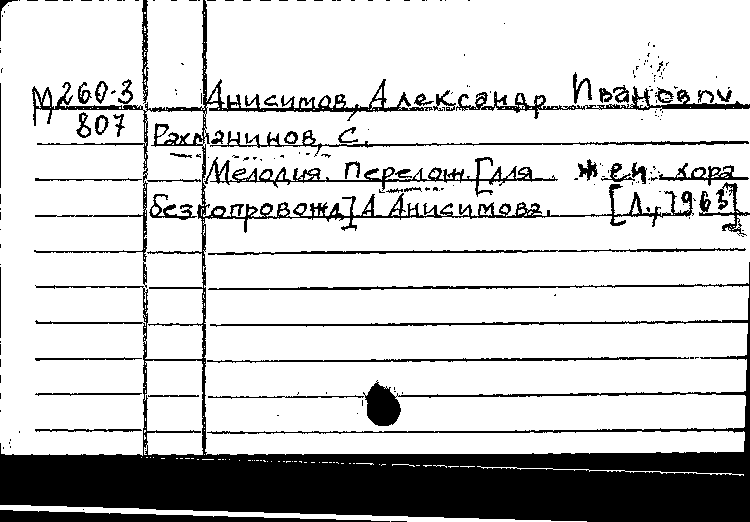 М 260-3 Анисимов, Александр Иванович
807 Рахманинов, С.
Мелодия. Перелож. [для жен. хора
без сопровожд] А Анисимова. [Л., 1963]